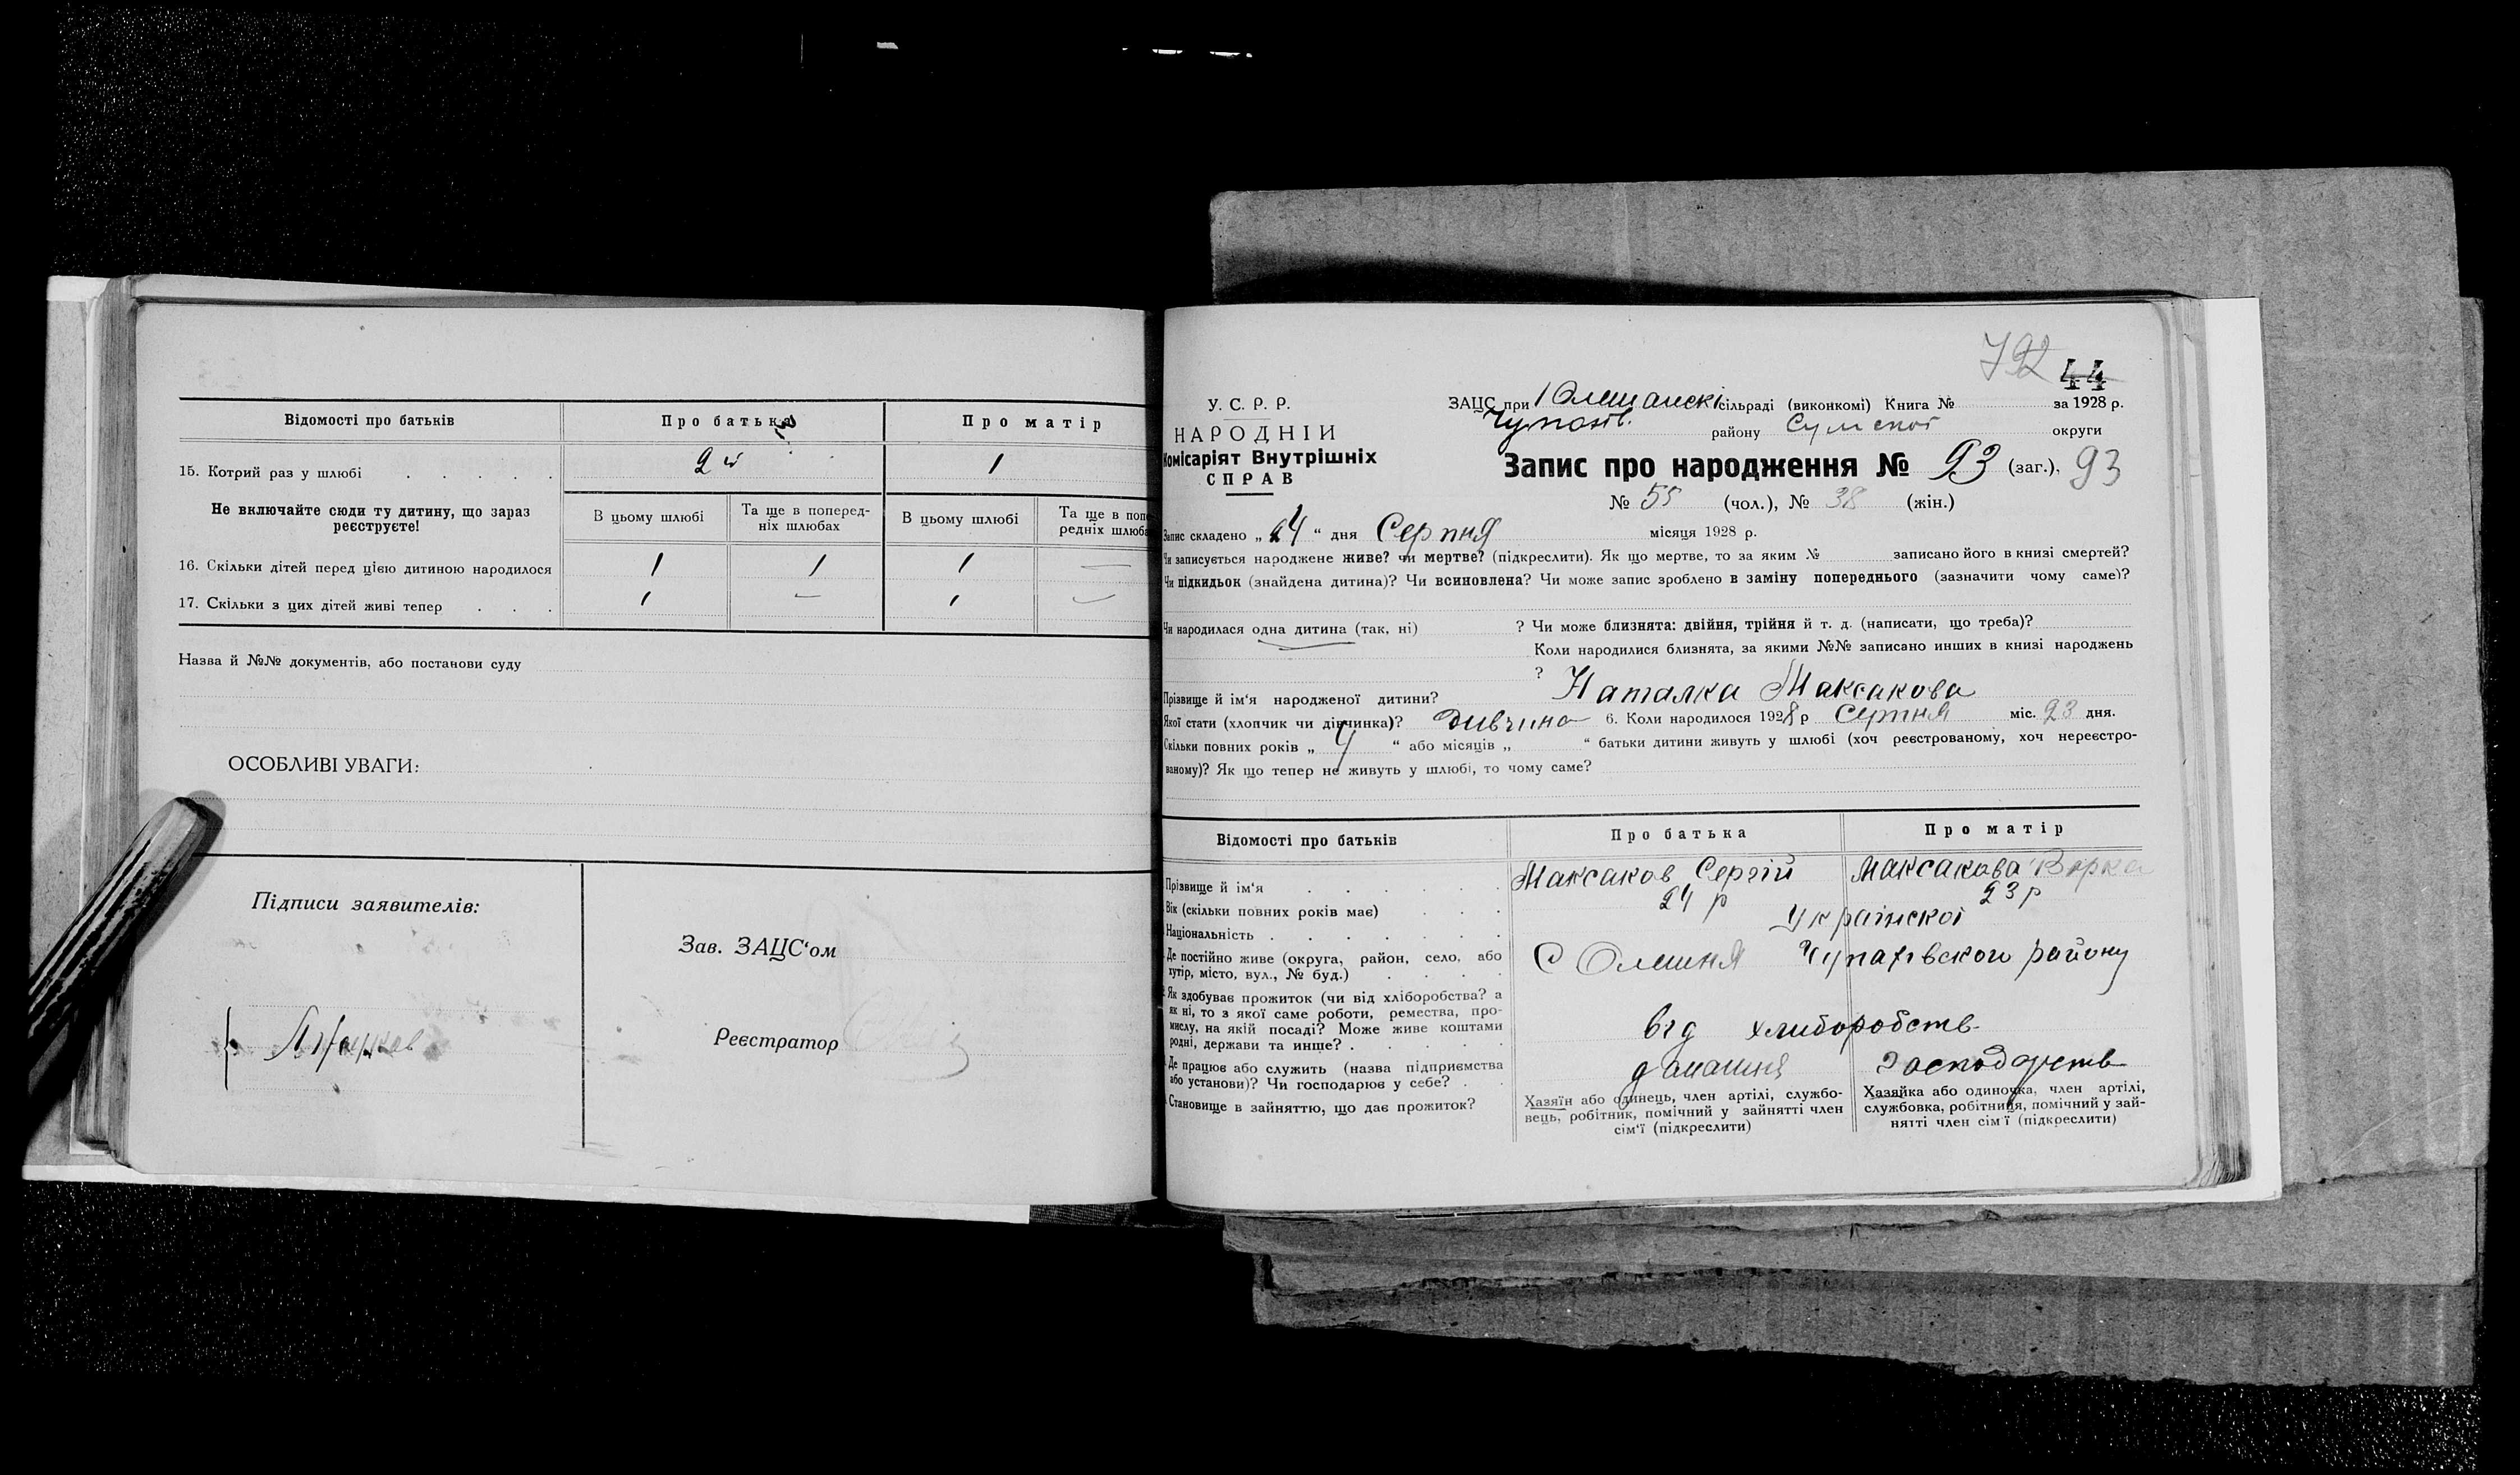 Відомості про батьків Про батька Про матір
15. Котрий раз у шлюбі 2й 1
Не включайте сюди ту дитину, що зараз
реєструєте!
В цьому шлюбі Та ще в поперед-
ніх шлюбах В цьому шлюбі Та ще в поп
редніх шлюба
16. Скільки дітей перед цією дитиною народилося 1 1 1 —
17. Скільки з цих дітей живі тепер 1 — 1 —
Назва й №№ документів, або постанови суду
ОСОБЛИВІ УВАГИ:
Підписи заявителів:
Зав. ЗАЦС‘ом
Реєстратор
792 44
У. С. Р. Р.
НАРОДНІЙ
Комісаріят Внутрішніх
СПРАВ
ЗАЦС при 1 Олешанскі сільраді (виконкомі) Книга № за 1928 р.
Чупахів. району Сумскої округи
Запис про народження № 93 (заг.), 93
№ 55 (чол.), № 38 (жін.)
Запис складено „ 24 “ дня Серпня місяця 1928 р.
Чи записується народжене живе? чи мертве? (підкреслити). Як що мертве, то за яким № записано його в книзі смертей?
Чи підкидьок (знайдена дитина)? Чи всиновлена? Чи може запис зроблено в заміну попереднього (зазначити чому саме)?
Чи народилася одна дитина (так, ні) ? Чи може близнята: двійня, трійня й т. д. (написати, що треба)?
Коли народилися близнята, за якими №№ записано инших в книзі народжень
?
Прізвище й ім‘я народженої дитини? Наталка Максакова
Якої стати (хлопчик чи дівчинка)? дивчина 6. Коли народилося 1928 р Серпня міс. 23 дня.
Скільки повних років „ 4 “ або місяців „ “ батьки дитини живуть у шлюбі (хоч реєстрованому, хоч нереєстро-
ваному)? Як що тепер не живуть у шлюбі, то чому саме?
Відомості про батьків Про батька Про матір
Прізвище й ім‘я Максаков Сергій Максакова Вірка
Вік (скільки повних років має) 24 р 23 р
Національність Українскої
Де постійно живе (округа, район, село, або
хутір, місто, вул., № буд.) С Олешня Чупахівского району
Як здобуває прожиток (чи від хліборобства? а
як ні, то з якої саме роботи, ремества, про-
мислу, на якій посаді? Може живе коштами
родні, держави та инше? від хлиборобств
Де працює або служить (назва підприємства
або установи)? Чи господарює у себе? домашня господарств
Становище в зайняттю, що дає прожиток?
Хазяїн або одинець, член артілі, службо-
вець, робітник, помічний у зайнятті член
сім‘ї (підкреслити)
Хазяйка або одиночка, член артілі,
службовка, робітниця, помічний у зай-
нятті член сім‘ї (підкреслити)